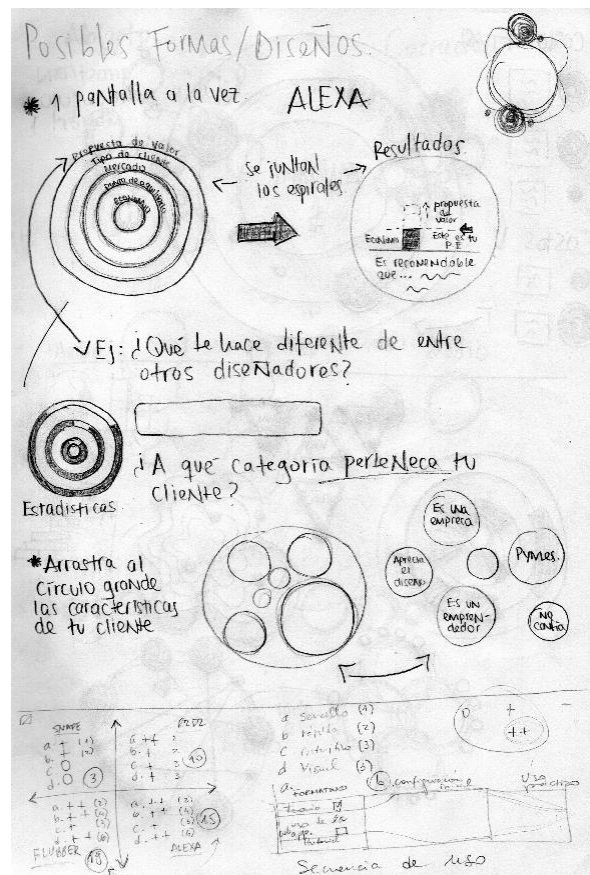 Posibles Formas/Diseños.
* 1 pantalla a la vez. ALEXA
propuesta de valor
Tipo de cliente
Mercado
Punto de equilibrio
Economía
← se juntan →
los espirales
Resultados
propuesta
de
valor
Economía
Este es tu
P.E
Es recomendable
que...
Ej: ¿Qué te hace diferente de entre
otros diseñadores?
Estadísticas
¿A qué categoria pertenece tu
cliente?
*Arrastra al
círculo grande
las características
de tu cliente
Es una
empresa
Aprecia
el
diseño
Pymes.
Es un
empren-
dedor
No
confía
SUAPE
a + (1)
b. + (2)
c O
d. O
3
R2D2
a ++ 2
b. + 2
c + 3
d. + 3
10
a. + + (2)
b. + + (4)
c. + (3)
d. + + (6)
FLUBBER
a. ++ (2)
b. ++ (4)
c. + (3)
d. ++ (6)
15
ALEXA
a sencillo (1)
b rápido (2)
c intuitivo (3)
d visual (3)
+
++
-
a. FORMATIVO
b. configuración
inicial
Uso
práctico
Secuencia de uso